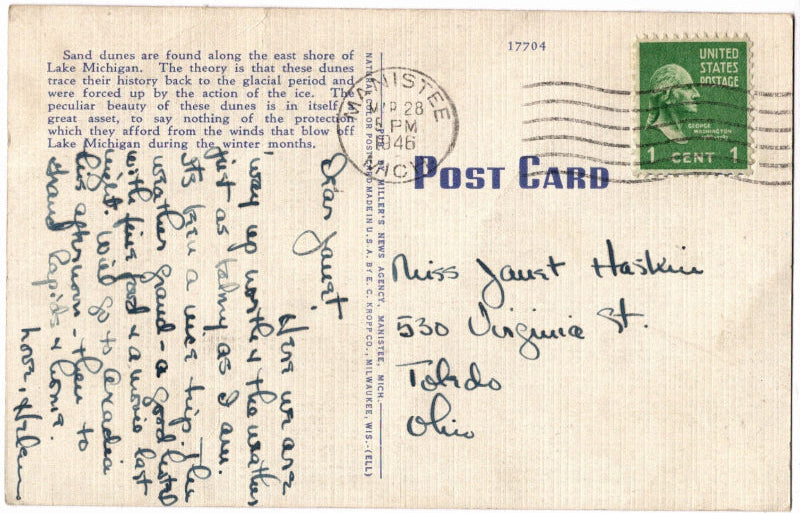 Sand dunes are found along the east shore of
Lake Michigan. The theory is that these dunes
trace their history back to the glacial period and
were forced up by the action of the ice. The
peculiar beauty of these dunes is in itself a
great asset, to say nothing of the protection
which they afford from the winds that blow off
Lake Michigan during the winter months.
Dear Janet:
Here we are
'way up north & the weather
just as balmy as I am.
Its been a nice trip. The
weather grand - a good hotel
with fine food & a movie last
night. Will go to Arcadia
this afternoon - then to
Grand Rapids & home.
Love, Helen
PUB. BY MILLER'S NEWS AGENCY, MANISTEE, MICH.
NATURAL COLOR POST CARD MADE IN U.S.A. BY E. C. KROPP CO., MILWAUKEE, WIS.-(ELL)
17704
MANISTEE
MAR 28
5 PM
1946
MICH
UNITED
STATES
POSTAGE
GEORGE
WASHINGTON
1 CENT 1
POST CARD
Miss Janet Haskin
530 Virginia St.
Toledo
Ohio